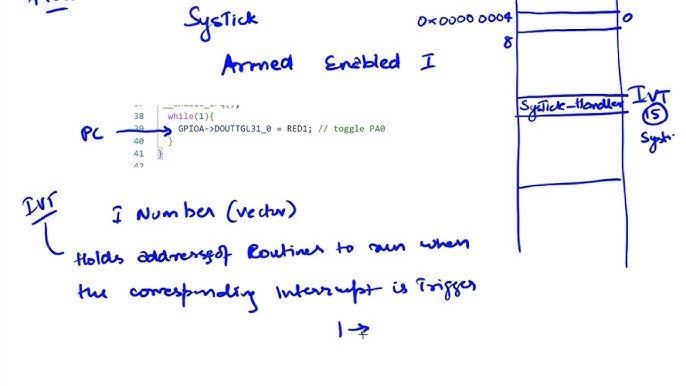 SysTick
Armed Enabled I
0x0000 0004
0
8
38 while(1){
PC
GPIOA->DOUTTGL31_0 = RED1; // toggle PA0
40 }
41 }
SysTick-Handler
IVT
15
IVT
I Number (vector)
Holds addresses of Routines to run when
the corresponding Interrupt is Trigger
1 →